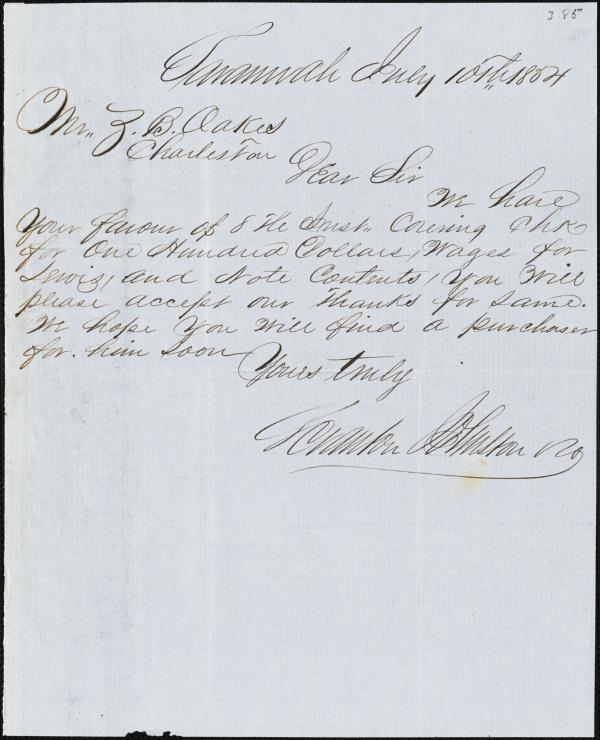 385
Savannah July 10th 1854
Mr. Z. B. Oakes
Charleston
Dear Sir
We have
Your favour of 8 The Inst. Covering Chk
for One Hundred Dollars, Wages for
Lewis, and Note Contents, You Will
please accept our thanks for same.
We hope You Will find a purchaser
for him soon
Yours truly
Scranton Johnston & Co